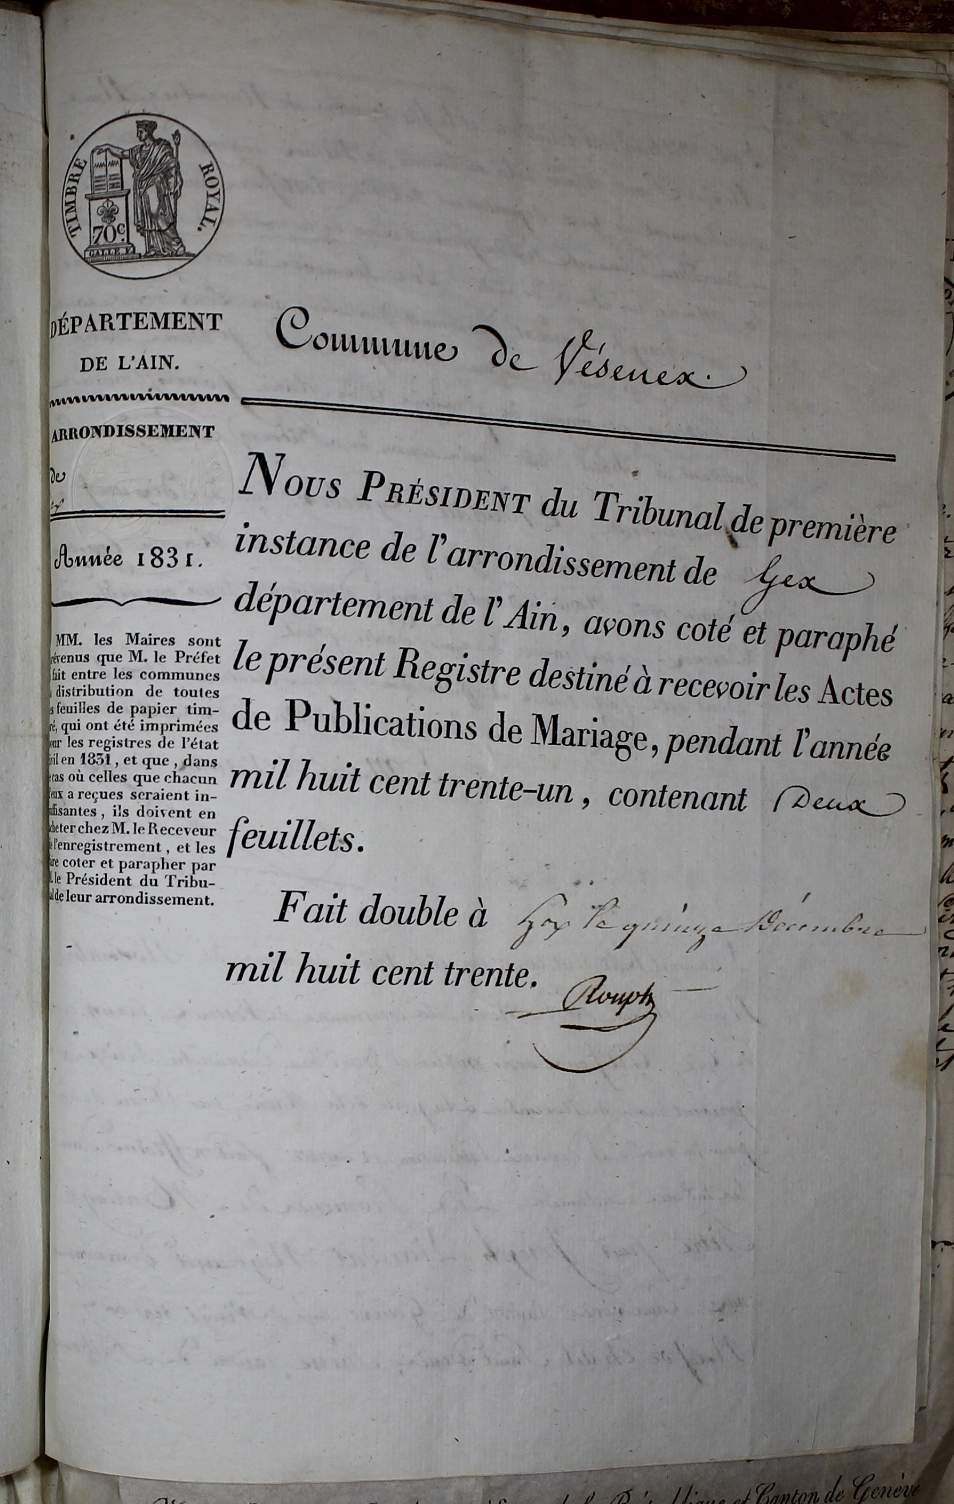 TIMBRE ROYAL.
70c
DÉPARTEMENT
DE L'AIN.
ARRONDISSEMENT
de
Année 1831.
MM. les Maires sont
révenus que M. le Préfet
fait entre les communes
distribution de toutes
s feuilles de papier tim-
ré, qui ont été imprimées
ur les registres de l'état
il en 1831, et que, dans
cas où celles que chacun
eux a reçues seraient in-
ffisantes, ils doivent en
heter chez M. le Receveur
l'enregistrement, et les
ire coter et parapher par
. le Président du Tribu-
al de leur arrondissement.
Commune de Vésenex.
NOUS PRÉSIDENT du Tribunal de première
instance de l'arrondissement de Gex
département de l'Ain, avons coté et paraphé
le présent Registre destiné à recevoir les Actes
de Publications de Mariage, pendant l'année
mil huit cent trente-un, contenant Deux
feuillets.
Fait double à Gex le quinze Décembre
mil huit cent trente.
Rouph
et Canton de Genève